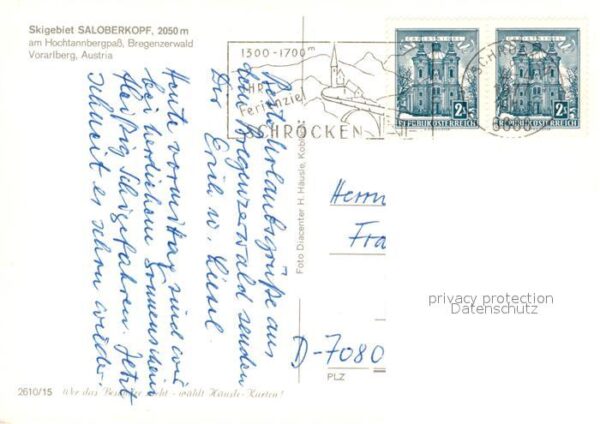 Skigebiet SALOBERKOPF, 2050 m
am Hochtannbergpaß, Bregenzerwald
Vorarlberg, Austria
1300-1700 m
IHR
Ferienziel
SCHRÖCKEN
2 S
REPUBLIK ÖSTERREICH
2 S
REPUBLIK ÖSTERREICH
Beste Urlaubsgrüße aus
dem Bregenzerwald senden
Dir Erich u. Liesel.
Heute vormittag sind wir
bei herrlichem Sonnenschein
fleißig Schigefahren. Jetzt
schneit es schon wieder.
Foto Diacenter H. Häusle,
Herrn
Fra
D-7080
PLZ
privacy protection
Datenschutz
2610/15 Wer das Beste
sucht - wählt Häusle-Karten!